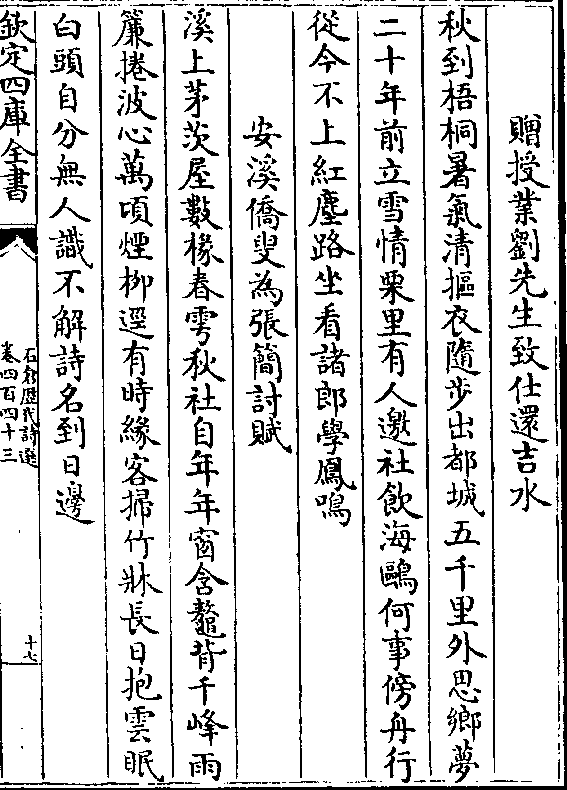 贈授業劉先生致仕還吉水
秋到梧桐暑氣清摳衣隨步出都城五千里外思鄉夢
二十年前立雪情栗里有人邀社飲海鷗何事傍舟行
從今不上紅塵路坐看諸郎學鳳鳴
安溪僑叟為張簡討賦
溪上茅茨屋數椽春雩秋社自年年窗含鼇背千峰雨
簾捲波心萬頃煙柳逕有時緣客掃竹牀長日抱雲眠
白頭自分無人識不解詩名到日邊
欽定四庫全書
石倉歷代詩選
卷四百四十三
十七